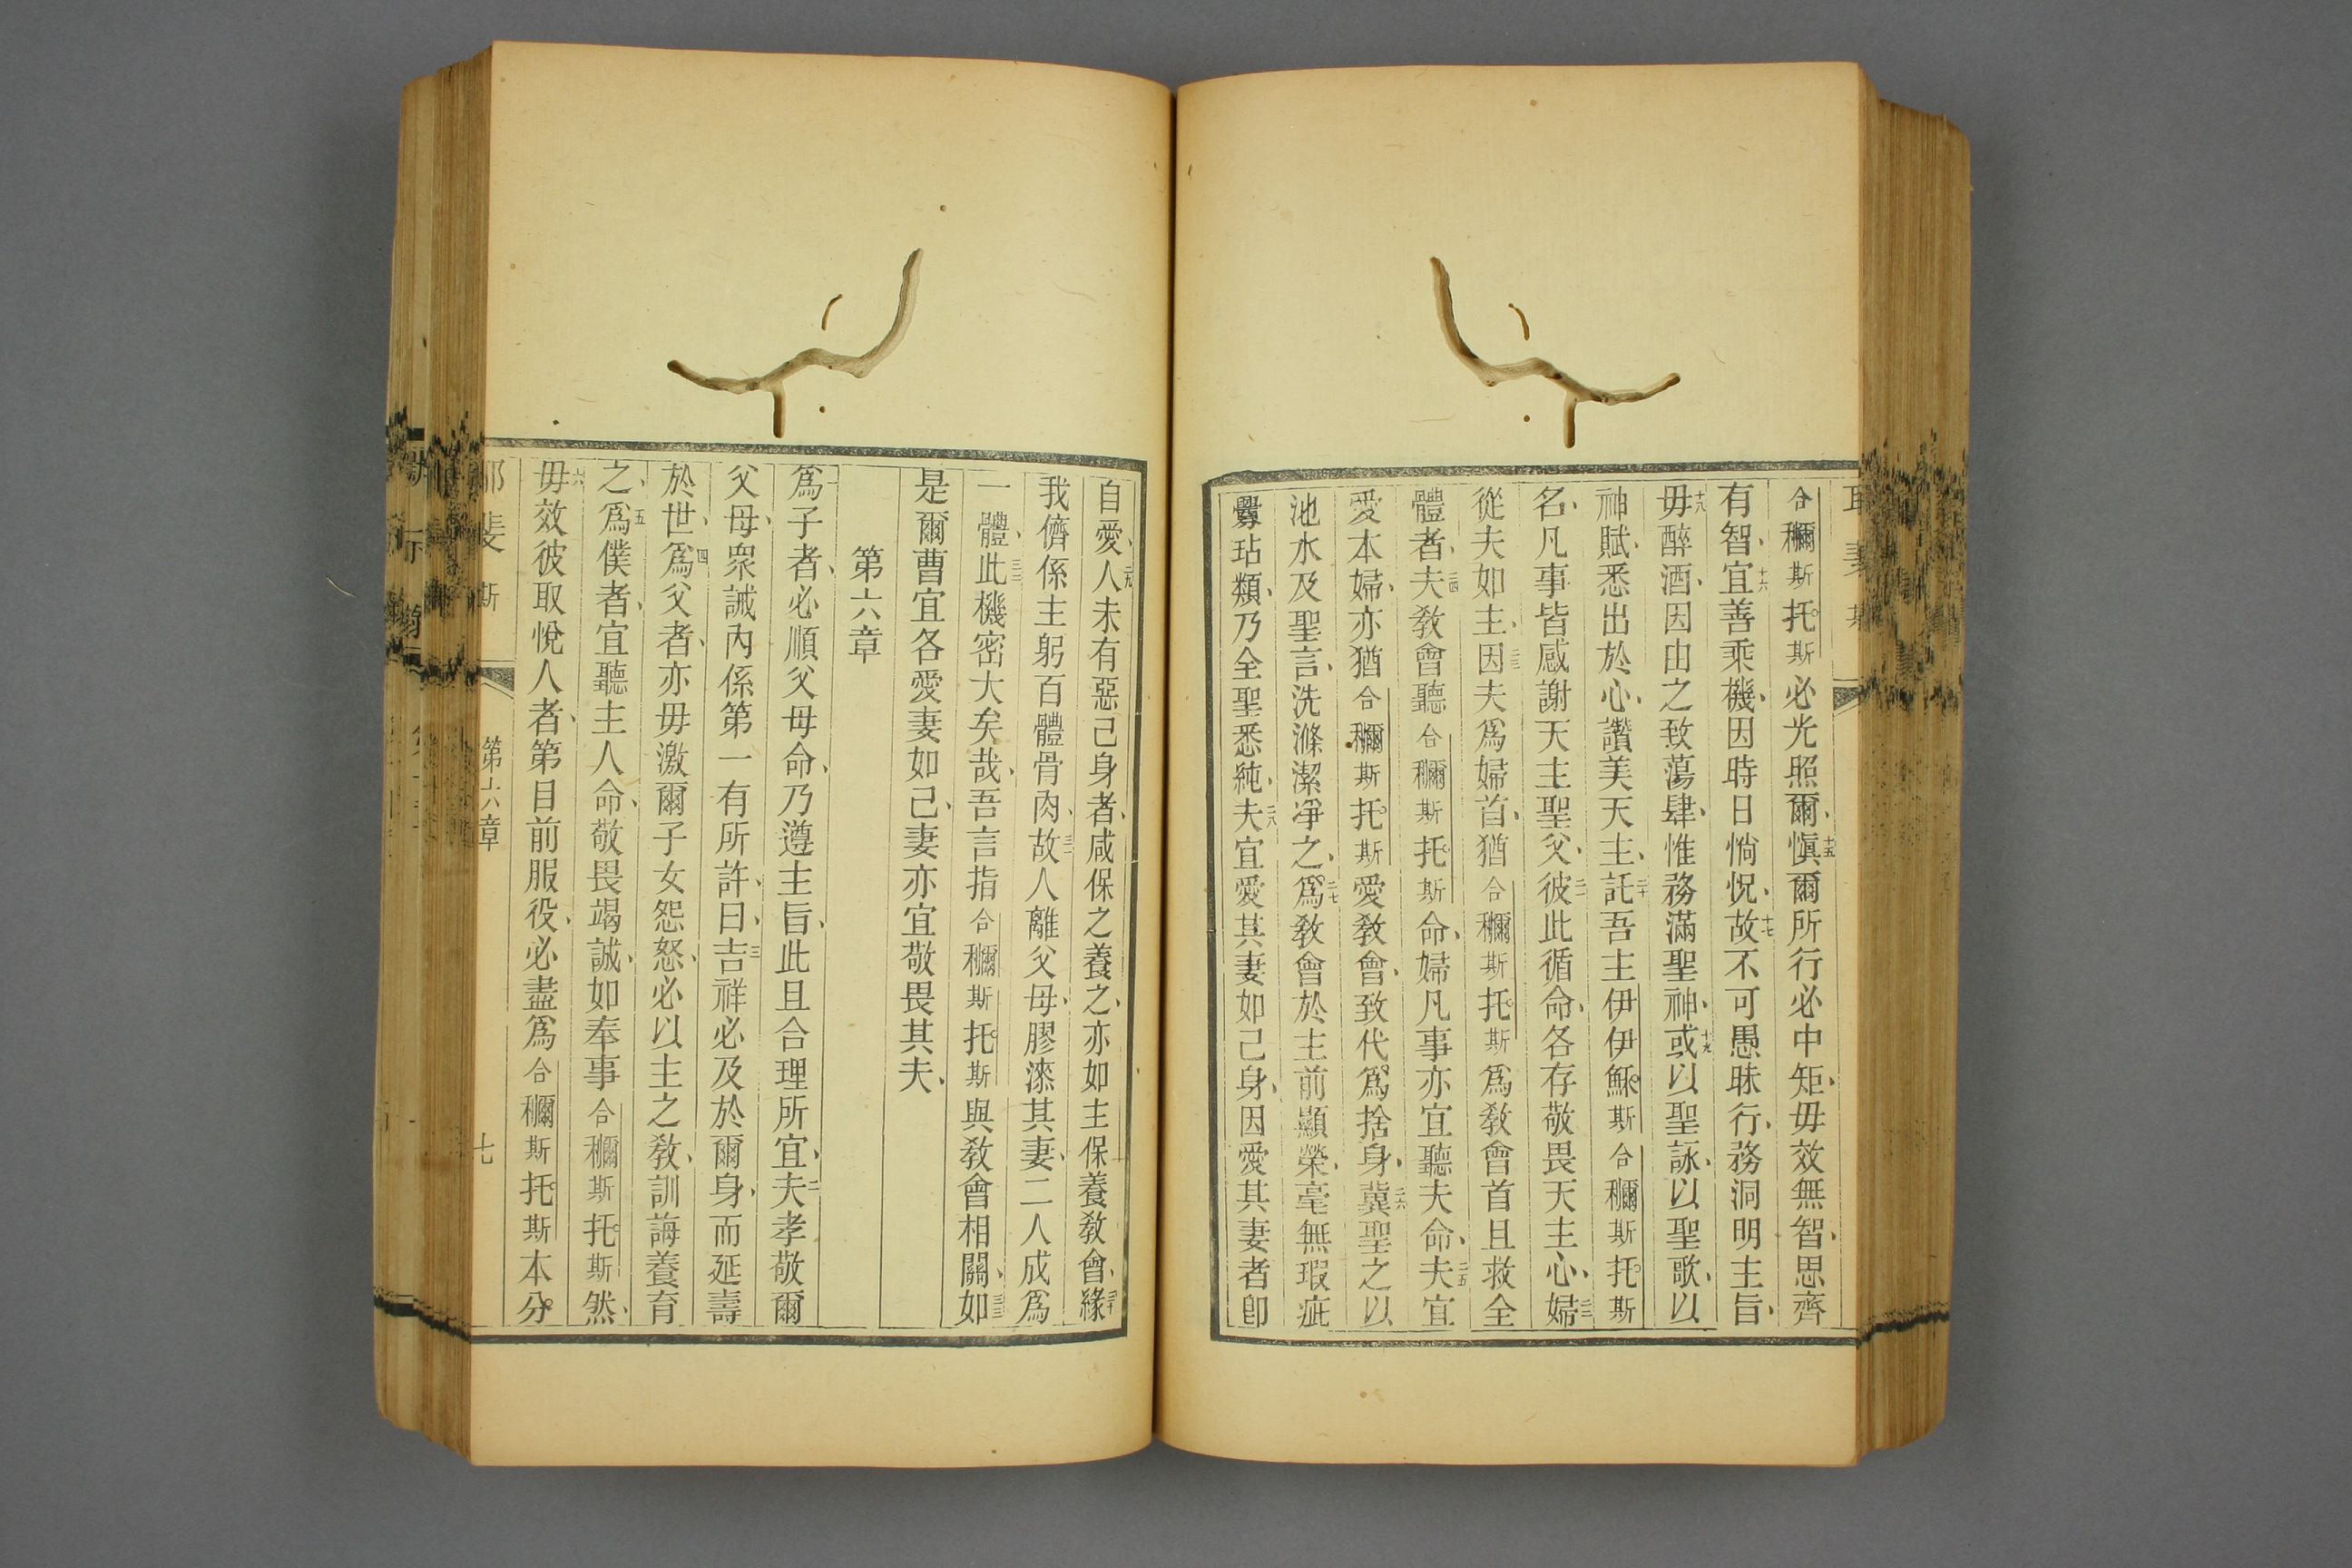 合𥠖斯托斯必光照爾、十五愼爾所行必中矩、毋效無智、思齊
有智、十六宜善乘機、因時日惝怳、十七故不可愚昧行、務洞明主旨、
十八毋醉酒、因由之致蕩肆、惟務滿聖神、十九或以聖詠、以聖歌、以
神賦、悉出於心、讚美天主、二十託吾主伊伊穌斯合𥠖斯托斯
名、凡事皆感謝天主聖父、二一彼此循命、各存敬畏天主心、二二婦
從夫如主、二三因夫爲婦首、猶合𥠖斯托斯爲敎會首且救全
體者、二四夫敎會聽合𥠖斯托斯命、婦凡事亦宜聽夫命、二五夫宜
愛本婦、亦猶合𥠖斯托斯愛敎會、致代爲捨身、二六冀聖之以
池水及聖言、洗滌潔凈之、二七爲敎會於主前顯榮、毫無瑕疵
釁玷類、乃全聖悉純、二八夫宜愛其妻如己身、因愛其妻者卽
自愛、二九人未有惡己身者、咸保之養之、亦如主保養敎會、三十緣
我儕係主躬百體骨肉、三一故人離父母、膠漆其妻、二人成爲
一體、三二此機密大矣哉、吾言指合𥠖斯托斯與敎會相關、三三如
是爾曹宜各愛妻如己、妻亦宜敬畏其夫、
第六章
一爲子者、必順父母命、乃遵主旨、此且合理所宜、二夫孝敬爾
父母、衆誡內係第一有所許、曰、三吉祥必及於爾身、而延壽
於世、四爲父者、亦毋激爾子女怨怒、必以主之敎、訓誨養育
之、五爲僕者、宜聽主人命、敬畏竭誠、如奉事合𥠖斯托斯然、
六毋效彼取悅人者、第目前服役、必盡爲合𥠖斯托斯本分、
斐斯 第六章 七